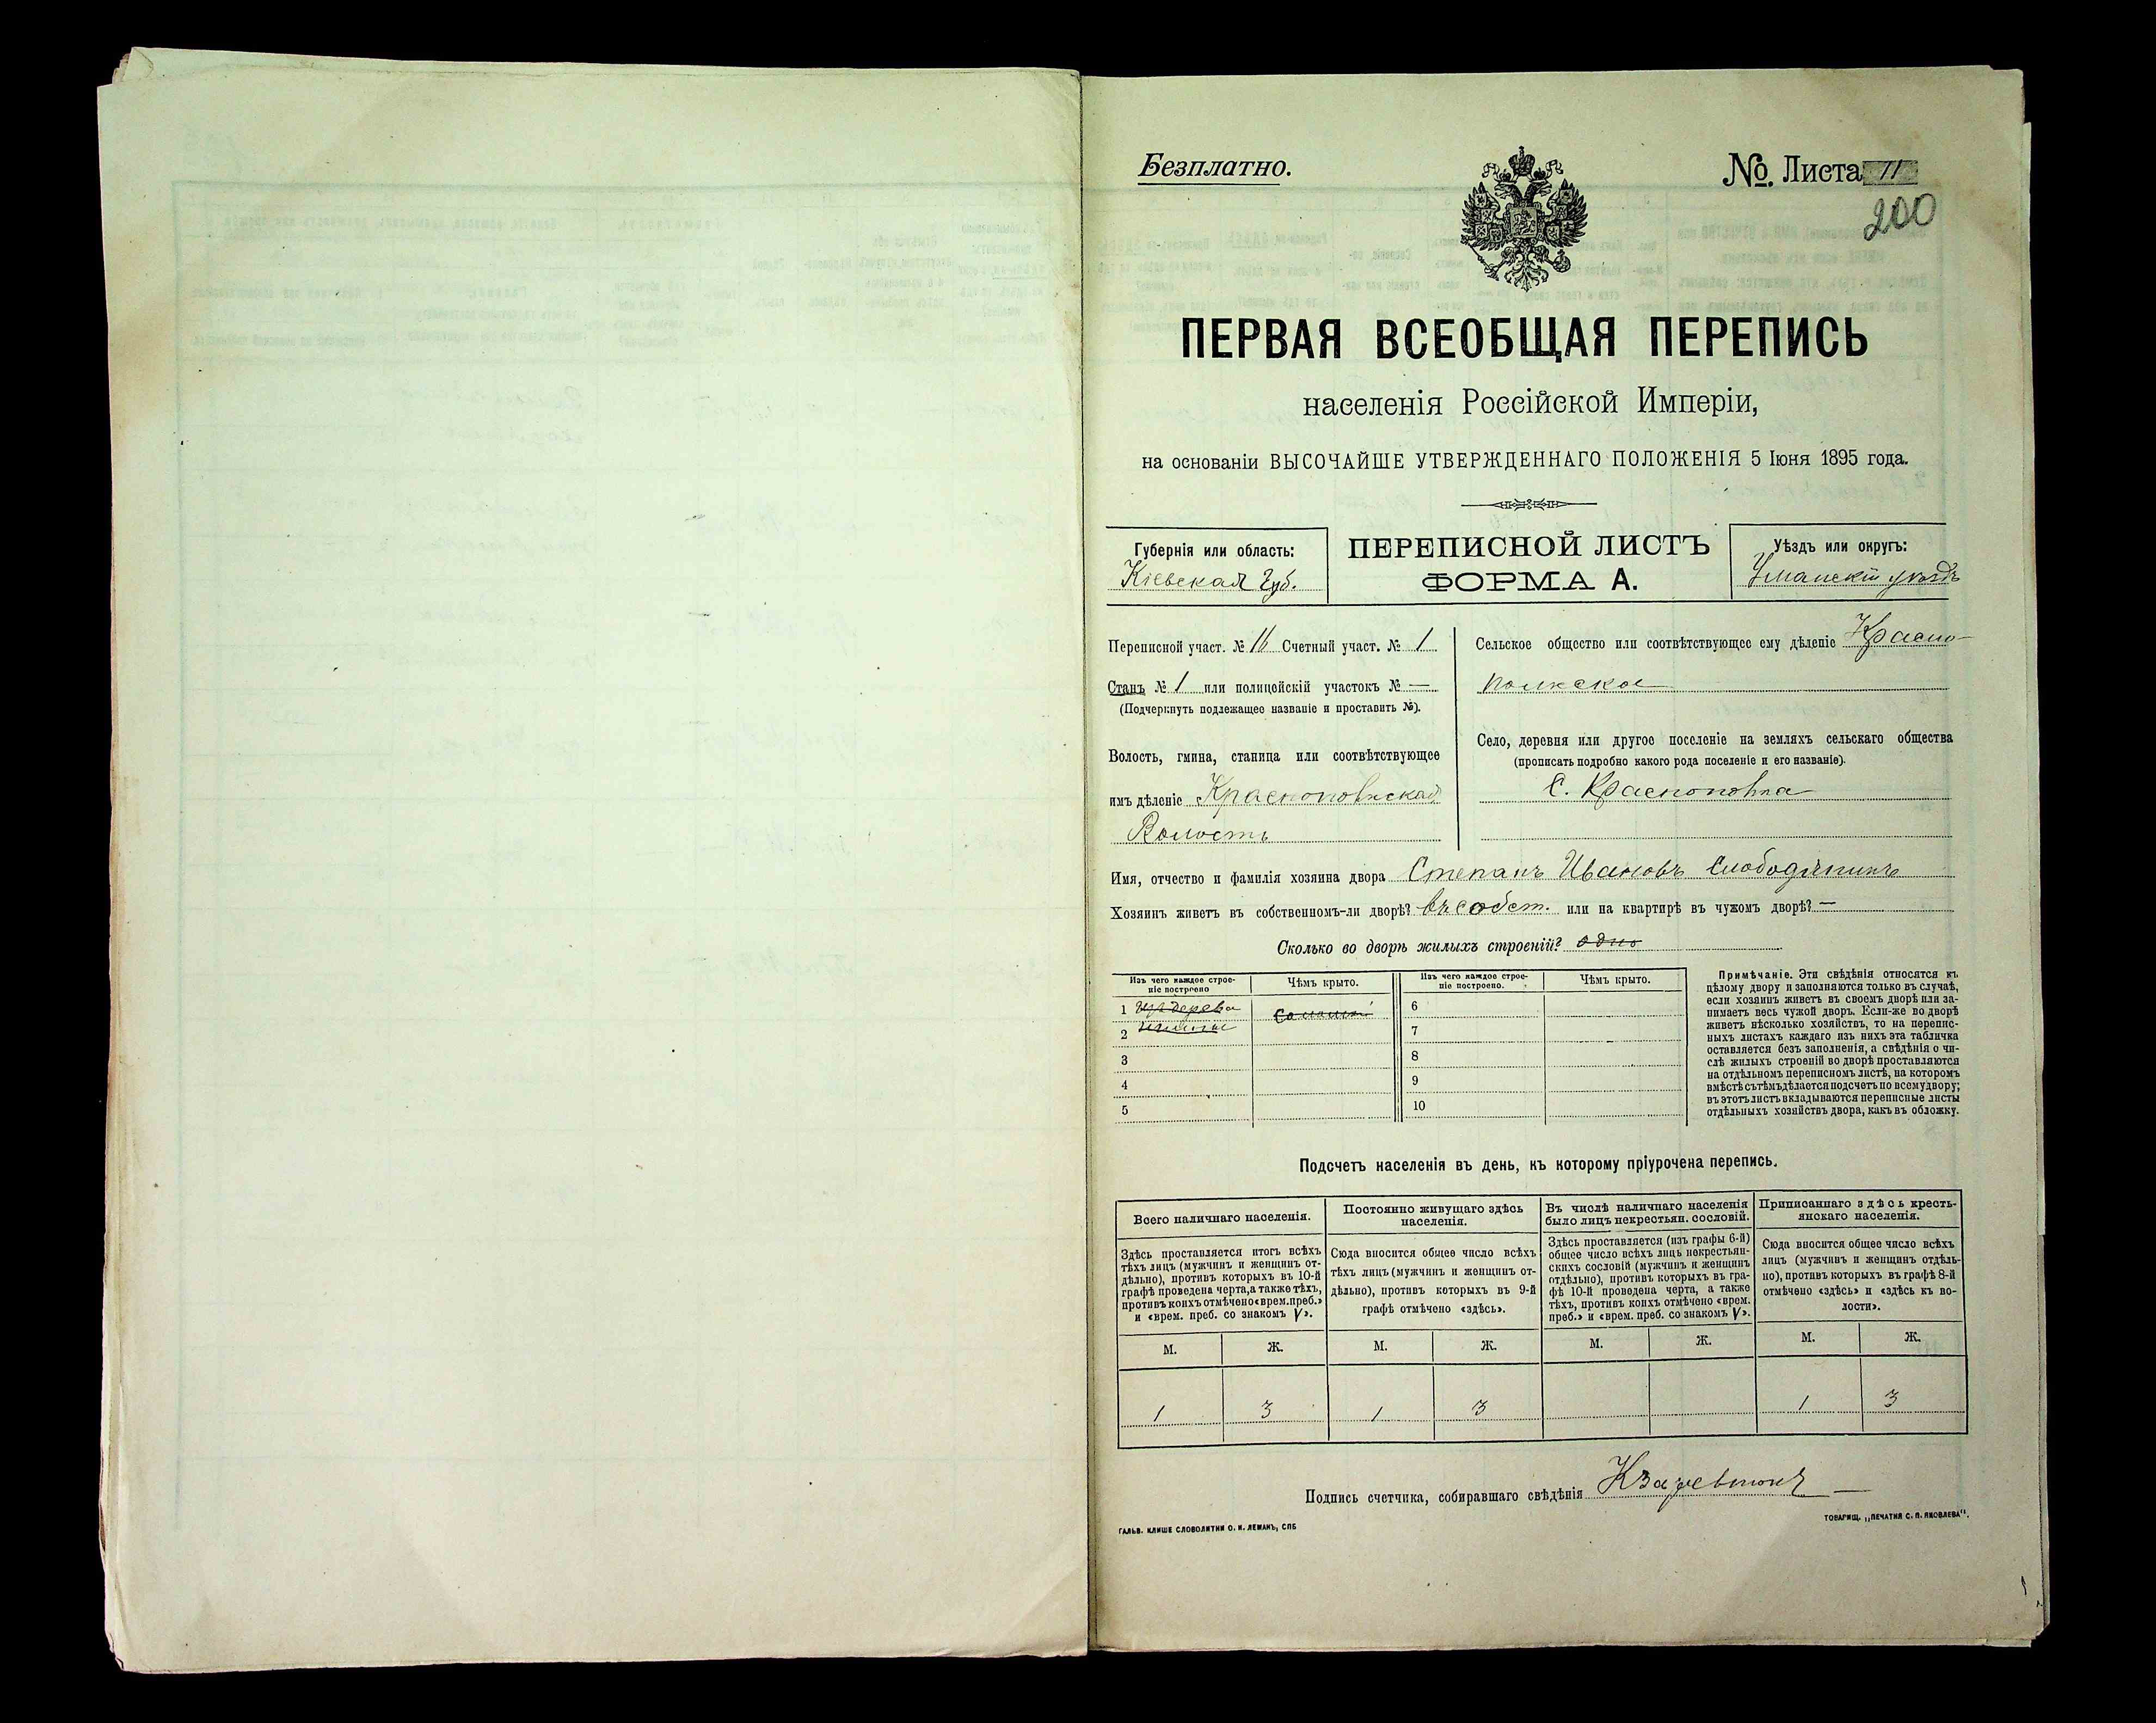 Безплатно.
№ Листа 11
200
ПЕРВАЯ ВСЕОБЩАЯ ПЕРЕПИСЬ
населенія Россійской Имперіи,
на основаніи ВЫСОЧАЙШЕ УТВЕРЖДЕННАГО ПОЛОЖЕНІЯ 5 Іюня 1895 года.
Губернія или область:
Кіевская Губ.
ПЕРЕПИСНОЙ ЛИСТЪ
ФОРМА А.
Уѣздъ или округъ:
Уманскій уѣздъ
Переписной участ. № 16 Счетный участ. № 1
Станъ № 1 или полицейскій участокъ № —
(Подчеркнуть подлежащее названіе и проставить №).
Волость, гмина, станица или соотвѣтствующее
имъ дѣленіе Краснополкская
Волость
Сельское общество или соотвѣтствующее ему дѣленіе Красно-
полкское
Село, деревня или другое поселеніе на земляхъ сельскаго общества
(прописать подробно какого рода поселеніе и его названіе).
С. Краснополка
Имя, отчество и фамилія хозяина двора Степанъ Ивановъ Слободяникъ
Хозяинъ живетъ въ собственномъ-ли дворѣ? въ собст. или на квартирѣ въ чужомъ дворѣ? —
Сколько во дворѣ жилыхъ строеній? одно
Изъ чего каждое строе-
ніе построено
Чѣмъ крыто.
Изъ чего каждое строе-
ніе построено.
Чѣмъ крыто.
1 изъ дерева
Соломой
2
3
4
5
6
7
8
9
10
Примѣчаніе. Эти свѣдѣнія относятся къ
цѣлому двору и заполняются только въ случаѣ,
если хозяинъ живетъ въ своемъ дворѣ или за-
нимаетъ весь чужой дворъ. Если-же во дворѣ
живетъ нѣсколько хозяйствъ, то на перепис-
ныхъ листахъ каждаго изъ нихъ эта табличка
оставляется безъ заполненія, а свѣдѣнія о чи-
слѣ жилыхъ строеній во дворѣ проставляются
на отдѣльномъ переписномъ листѣ, на которомъ
вмѣстѣ съ тѣмъ дѣлается подсчетъ по всему двору;
въ этотъ листъ вкладываются переписные листы
отдѣльныхъ хозяйствъ двора, какъ въ обложку.
Подсчетъ населенія въ день, къ которому пріурочена перепись.
Всего наличнаго населенія.
Здѣсь проставляется итогъ всѣхъ
тѣхъ лицъ (мужчинъ и женщинъ от-
дѣльно), противъ которыхъ въ 10-й
графѣ проведена черта, а также тѣхъ,
противъ коихъ отмѣчено «врем. преб.»
и «врем. преб. со знакомъ V».
М. Ж.
1 3
Постоянно живущаго здѣсь
населенія.
Сюда вносится общее число всѣхъ
тѣхъ лицъ (мужчинъ и женщинъ от-
дѣльно), противъ которыхъ въ 9-й
графѣ отмѣчено «здѣсь».
М. Ж.
1 3
Въ числѣ наличнаго населенія
было лицъ некрестьян. сословій.
Здѣсь проставляется (изъ графы 6-й)
общее число всѣхъ лицъ некрестьян-
скихъ сословій (мужчинъ и женщинъ
отдѣльно), противъ которыхъ въ гра-
фѣ 10-й проведена черта, а также
тѣхъ, противъ коихъ отмѣчено «врем.
преб.» и «врем. преб. со знакомъ V».
М. Ж.
Приписаннаго здѣсь кресть-
янскаго населенія.
Сюда вносится общее число всѣхъ
лицъ (мужчинъ и женщинъ отдѣль-
но), противъ которыхъ въ графѣ 8-й
отмѣчено «здѣсь» и «здѣсь къ во-
лости».
М. Ж.
1 3
Подпись счетчика, собиравшаго свѣдѣнія
ГАЛЬВ. КЛИШЕ СЛОВОЛИТНИ О. И. ЛЕМАНЪ, СПБ
ТОВАРИЩ. „ПЕЧАТНЯ С. П. ЯКОВЛЕВА“.